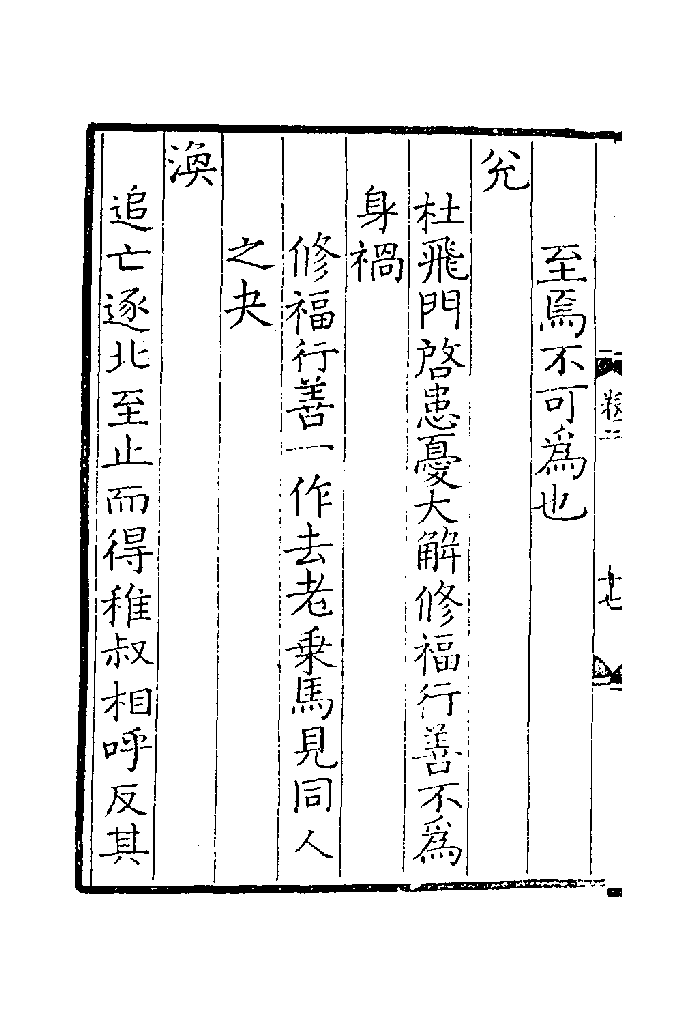 至焉不可為也
兊
杜飛門啓患憂大解修福行善不為
身禍
修福行善一作去老乗馬見同人
之夬
渙
追亡逐北至止而得稚叔相呼反其
十七